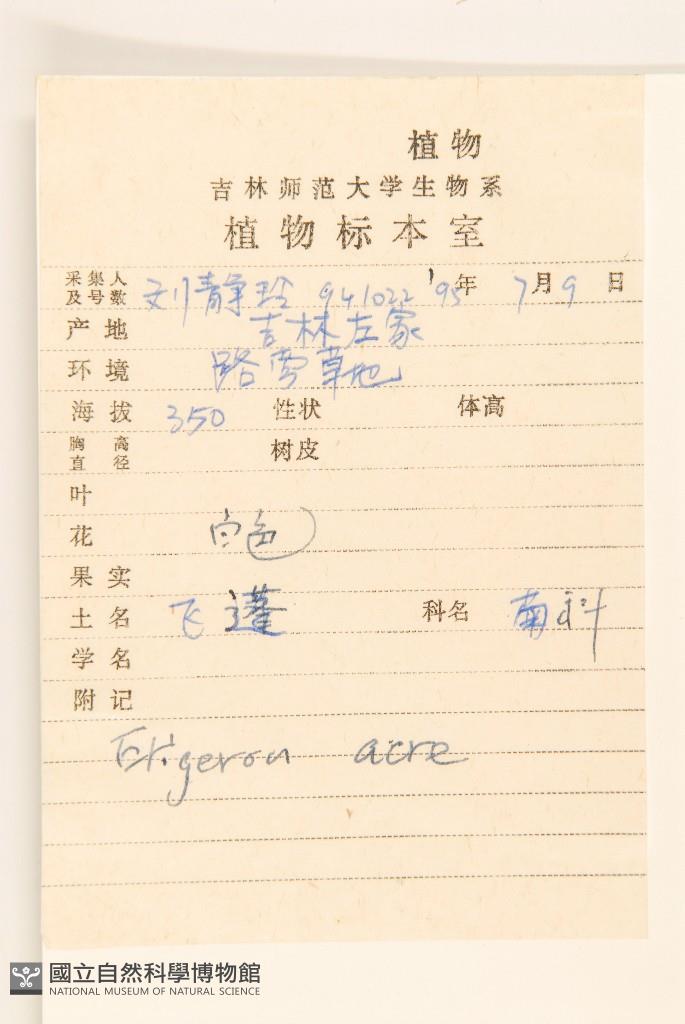 植物
吉林师范大学生物系
植物标本室
采集人及号数 刘静玲 941022 '95年 7月9日
产地 吉林左家
环境 路旁草地
海拔 350 性状 体高
胸高直径 树皮
叶
花 白色
果实
土名 飞蓬 科名 菊科
学名
附记
Erigeron acre
國立自然科學博物館
NATIONAL MUSEUM OF NATURAL SCIENCE